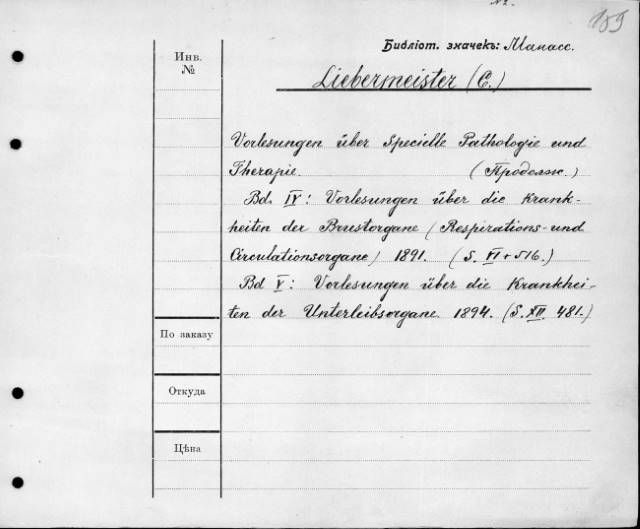 №2.
189
Библіот. значекъ: Манасс.
Инв.
№
Liebermeister (C.)
Vorlesungen über specielle Pathologie und
Therapie. (Продолж.)
Bd. IV: Vorlesungen über die Krank-
heiten der Brustorgane (Respirations- und
Circulationsorgane) 1891. (S. VI + 516.)
Bd V: Vorlesungen über die Krankhei-
ten der Unterleibsorgane. 1894. (S. XII. 481.)
По заказу
Откуда
Цѣна